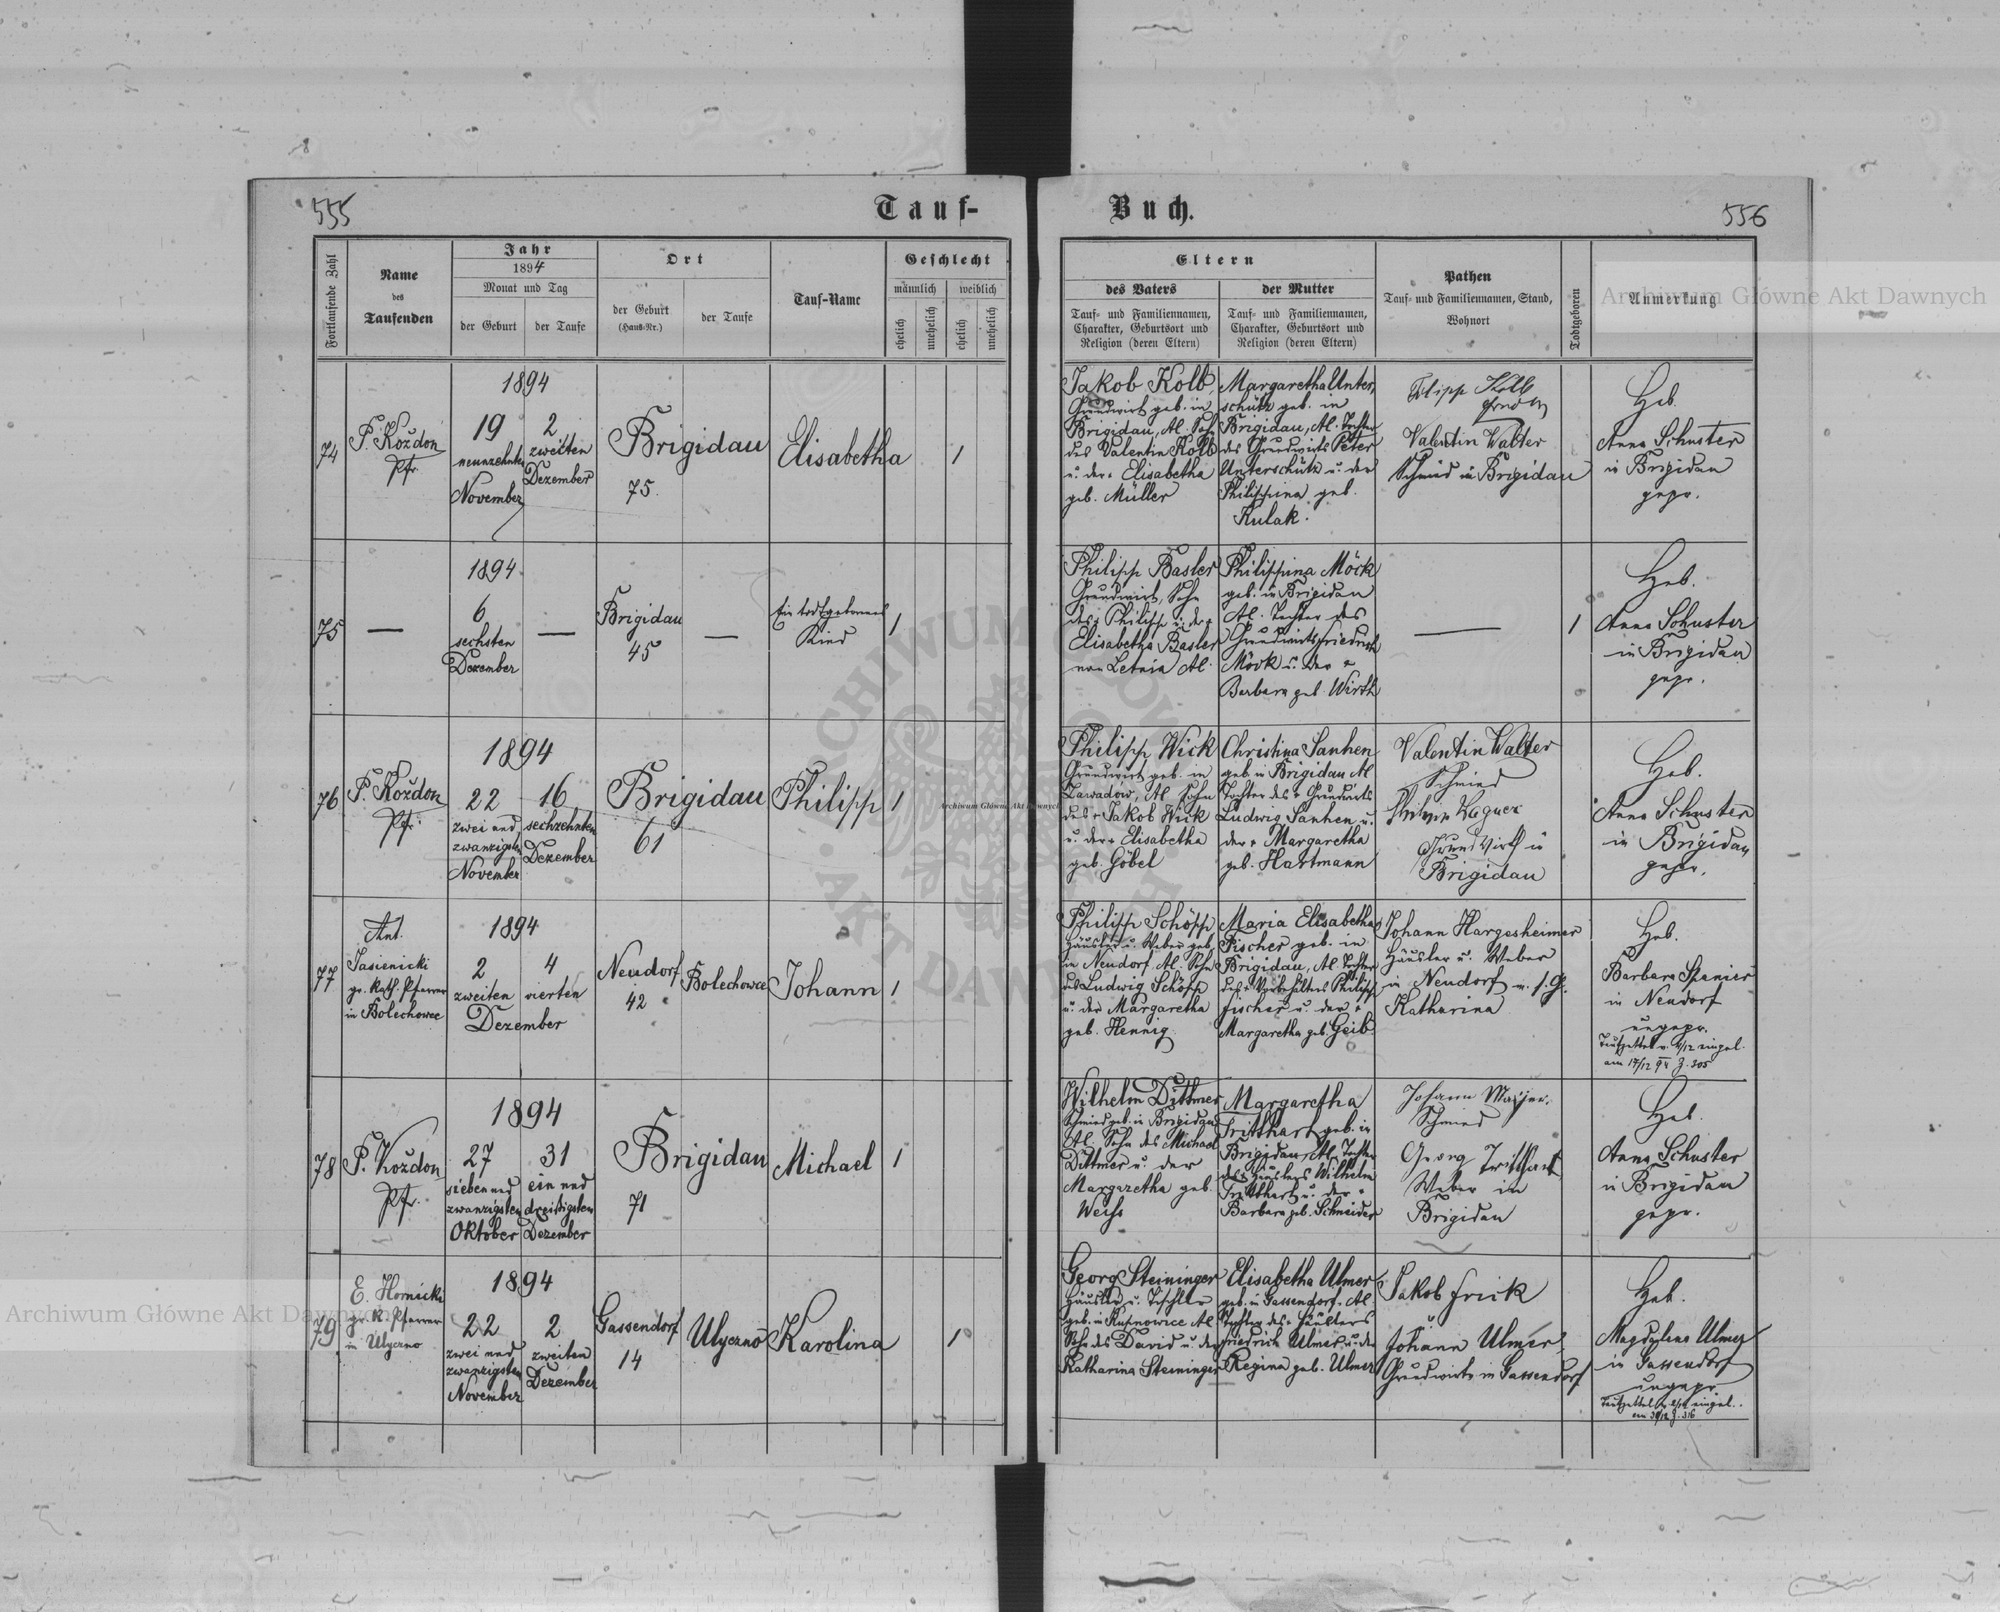 555
Tauf-
Buch.
556
Fortlaufende Zahl
Name
des
Taufenden
Jahr
1894
Monat und Tag
der Geburt
der Taufe
Ort
der Geburt
(Haus-Nr.)
der Taufe
Tauf-Name
Geschlecht
männlich
weiblich
ehelich
unehelich
ehelich
unehelich
Eltern
des Vaters
Tauf- und Familiennamen,
Charakter, Geburtsort und
Religion (deren Eltern)
der Mutter
Tauf- und Familiennamen,
Charakter, Geburtsort und
Religion (deren Eltern)
Pathen
Tauf- und Familiennamen, Stand,
Wohnort
Todtgeboren
Anmerkung
74
P. Koždon
Pfr.
1894
19
neunzehnten
November
2
zweiten
Dezember
Brigidau
75.
Elisabetha
1
Jakob Kolb,
Grundwirt geb. in
Brigidau, Al. Sohn
des Valentin Kolb
u. der Elisabetha
geb. Müller
Margaretha Unter-
schütz geb. in
Brigidau, Al. Tochter
des Grundwirts Peter
Unterschütz u. der
Philippina geb.
Kulak.
Filipp Kolb
Valentin Walter
Schmied in Brigidau
Heb.
Anna Schuster
in Brigidau
gepr.
75
—
1894
6
sechsten
Dezember
—
Brigidau
45
—
Ein todtgebornes
Kind
1
Philipp Basler
Grundwirt, Sohn
des Philipp u. der
Elisabetha Basler
von Letnia Al.
Philippina Möck
geb. in Brigidau
Al. Tochter des
Grundwirts Friedrich
Möck u. der
Barbara geb. Wirth
—
1
Heb.
Anna Schuster
in Brigidau
gepr.
76
P. Koždon
Pfr.
1894
22
zwei und
zwanzigsten
November
16
sechzehnten
Dezember
Brigidau
61
Philipp
1
Philipp Wick
Grundwirt geb. in
Zawadow, Al. Sohn
des Jakob Wick
u. der Elisabetha
geb. Göbel
Christina Sanhen
geb. in Brigidau Al
Tochter des Grundwirts
Ludwig Sanhen u.
der Margaretha
geb. Hartmann
Valentin Walter
Schmied
Wagner
Grundwirth in
Brigidau
Heb.
Anna Schuster
in Brigidau
gepr.
77
Ant.
Jasienicki
gr. kath. Pfarrer
in Bolechowce
1894
2
zweiten
4
vierten
Dezember
Neudorf
42
Bolechowce
Johann
1
Philipp Schöpp
Häusler u. Weber geb.
in Neudorf Al. Sohn
des Ludwig Schöpp
u. der Margaretha
geb. Hennig
Maria Elisabetha
Fischer geb. in
Brigidau, Al. Tochter
des Philipp
Fischer u. der
Margaretha geb. Geib
Johann Hargesheimer
Häusler u. Weber
in Neudorf m. s. G.
Katharina
Heb.
Barbara Spanier
in Neudorf
ungepr.
Taufzettel v. 4/12 eingel.
am 17/12 94 Z. 305
78
P. Koždon
Pfr.
1894
27
sieben und
zwanzigsten
Oktober
31
ein und
dreißigsten
Dezember
Brigidau
71
Michael
1
Wilhelm Dittmer
Schmied geb. in Brigidau
Al. Sohn des Michael
Dittmer u. der
Margaretha geb.
Weiß
Margaretha
Tritthart geb. in
Brigidau, Al. Tochter
des Häuslers Wilhelm
Tritthart u. der
Barbara geb. Schneider
Johann Mayer,
Schmied
Georg Tritthart
Weber in
Brigidau
Heb.
Anna Schuster
in Brigidau
gepr.
79
E. Hornicki
gr. k. Pfarrer
in Ulyczno
1894
22
zwei und
zwanzigsten
November
2
zweiten
Dezember
Gassendorf
14
Ulyczno
Karolina
1
Georg Steininger
Häusler u. Tischler
geb. in Kupnowice Al
Sohn des David u. der
Katharina Steininger
Elisabetha Ulmer
geb. in Gassendorf, Al.
Tochter des Häuslers
Friedrich Ulmer u. der
Regina geb. Ulmer
Jakob Frick
u
Johann Ulmer,
Grundwirte in Gassendorf
Heb.
Magdalena Ulmer
in Gassendorf
ungepr.
Taufzettel v. 2/12 eingel.
am 30/12 Z. 316
Archiwum Główne Akt Dawnych
Archiwum Główne Akt Dawnych
Archiwum Główne Akt Dawnych